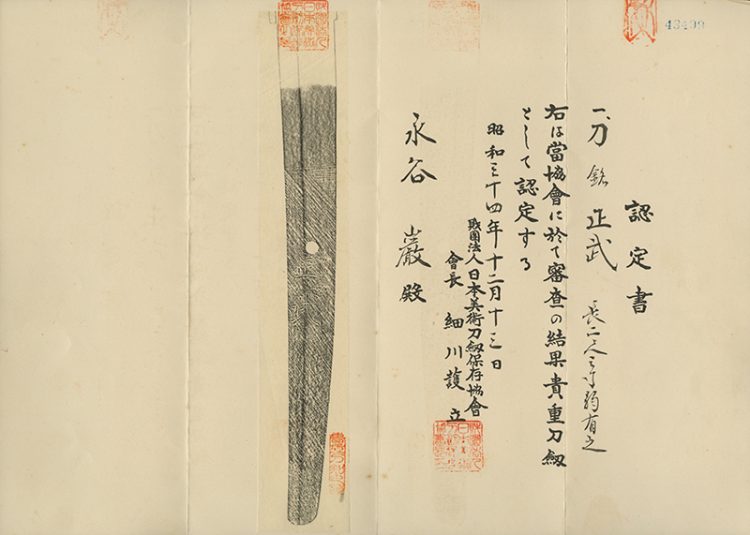 43499
認定書
一、刀 銘 正武 長二尺三寸弱有之
右は當協會に於て審査の結果貴重刀劔
として認定する
昭和三十四年十二月十三日
財團法人日本美術刀劔保存協會
會長 細川護立
永谷 巖殿